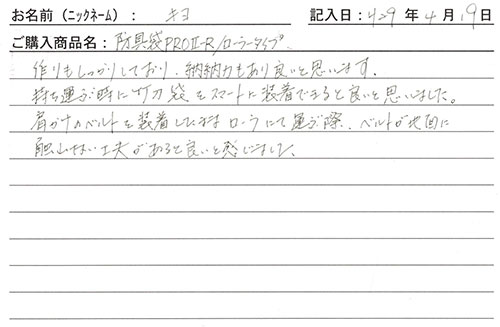 お名前（ニックネーム）： キヨ 記入日：H29年4月19日
ご購入商品名：防具袋PROⅡ-R/ローラータイプ
作りもしっかりしており、納納力もあり良いと思います。
持ち運ぶ時に竹刀袋をスマートに装着できると良いと思いました。
肩がけのベルトを装着したまま ローラにて運ぶ際、ベルトが地面に
触れない工夫があると良いと感じました。